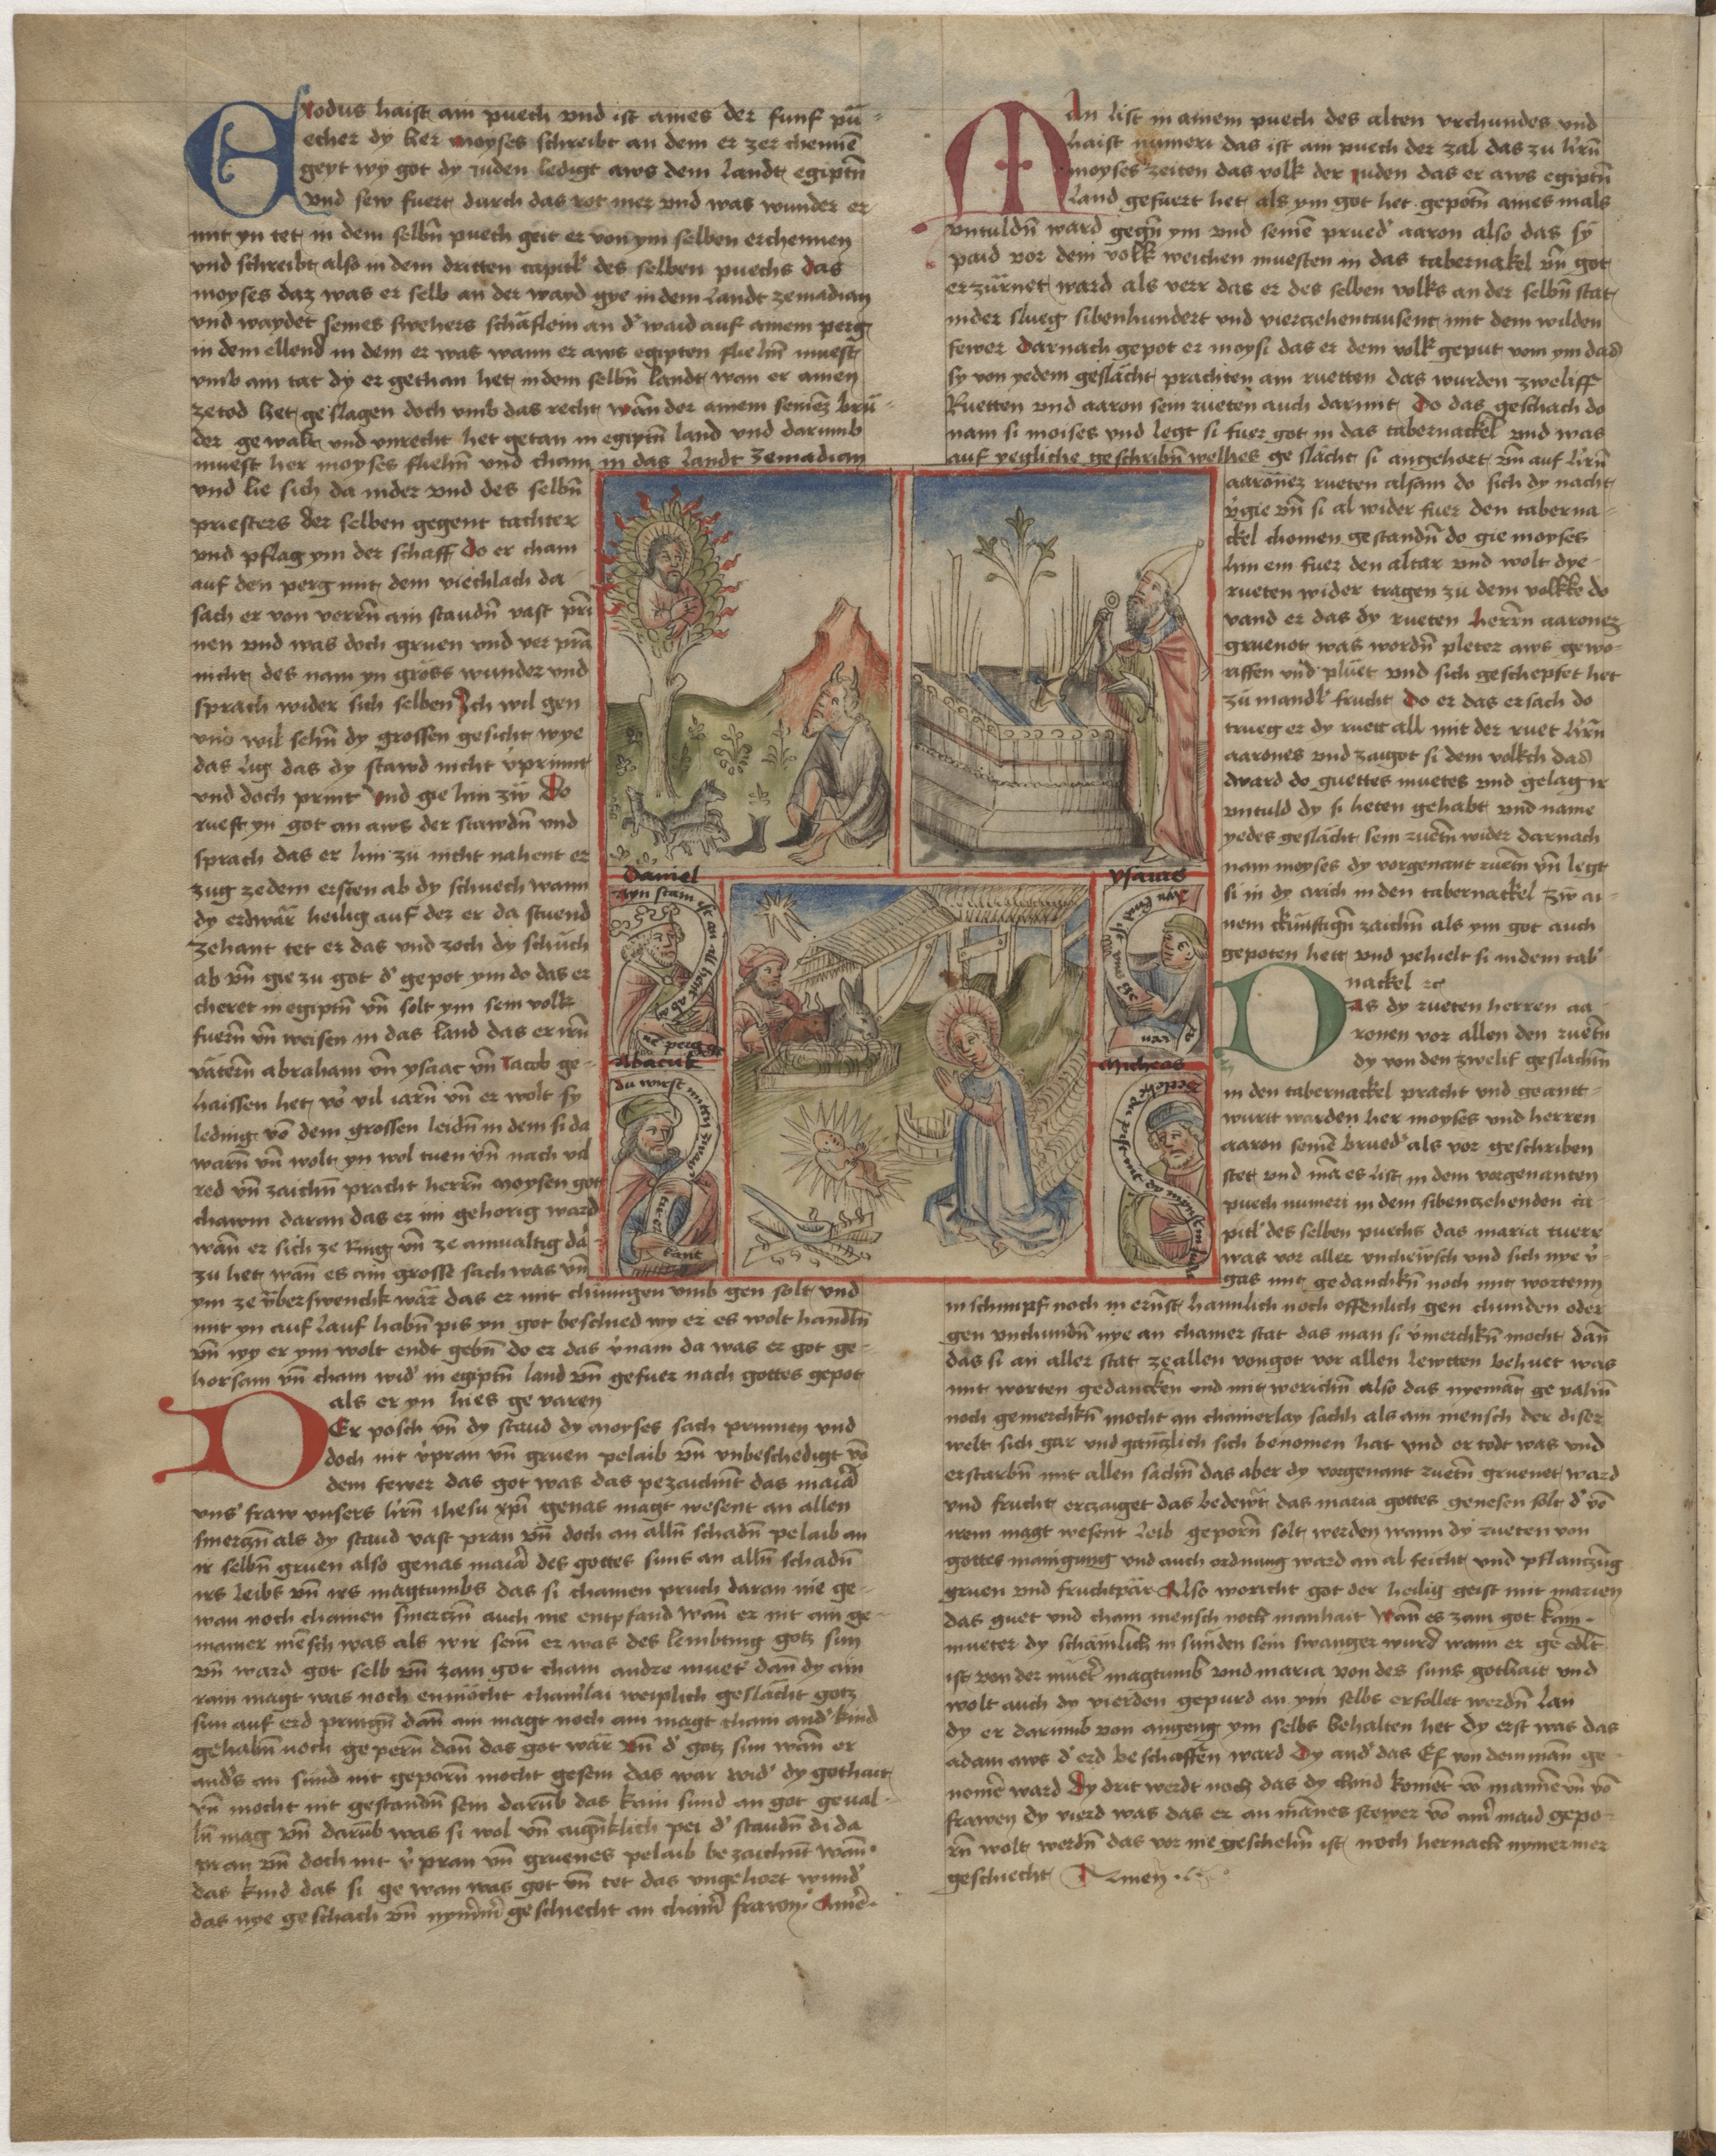 Exodus haist ain puech vnd ist aines der funf pü-
echer dy her moyses schreibt an dem er zer chennē
geyt wy got dy iuden ledigt aws dem landt egiptn̄
vnd sew fuert durch das rot mer vnd was wunder er
mit yn tet in dem selbn̄ puech geit er von ym selben erchennen
vnd schreibt also in dem dritten capitl' des selben puechs das
moyses daz was er selb an der wayd gye in dem landt zemadian
vnd waydet seines swehers schäflein an d' waid auf ainem perg
in dem ellend in dem er was wann er aws egipten fliehn̄ muest
vmb ain tat dy er gethan het in dem selbn̄ landt wan er ainen
ze tod het geslagen doch vmb das recht wan̄ der ainem seinez brü-
der gewalt vnd vnrecht het getan in egiptn̄ land vnd darumb
muest her moyses fliehn̄ vnd cham in das landt zemadian
vnd lie sich da nider vnd des selbn̄
priesters der selben gegent tachter
vnd pflag ym der schaff Do er cham
auf den perg mit dem viechlach da
sach er von verrn̄ ain staudn̄ vast prī
nen vnd was doch gruen vnd ver pran
nicht des nam yn gross wunder vnd
sprach wider sich selben Ich wil gen
vnd wil sehn̄ dy grossen gesicht wye
das lig das dy stawd nicht v'prinnt
vnd doch print vnd gie hin zw Do
rueft yn got an aws der stawdn̄ vnd
sprach das er hin zu nicht nahent er
zug zedem ersten ab dy schuech wann
dy erd wär heilig auf der er da stuend
zehant tet er das vnd zoch dy schuch
ab vn̄ gie zu got d' gepot ym do das er
cheret in egiptn̄ vn̄ solt ym sein volk
fuern̄ vn̄ weisen in das land das er irn̄
vätern̄ abraham vn̄ ysaac vn̄ Jacob ge-
haissen het vō vil iarn̄ vn̄ er wolt sy
leding vō dem grossen leidn̄ in dem si da
warn̄ vn̄ wolt yn wol tuen vn̄ nach vil
red vn̄ zaichn̄ pracht herrn̄ moysen got
chawm daran das er im gehorig ward
wan̄ er sich ze Ring vn̄ ze ainualtig da
zu het wan̄ es ain grosse sach was vn̄
ym ze v̈berswenchk wär das er mit chünigen vmb gen solt vnd
mit yn auf lauf habn̄ pis yn got beschied wy er es wolt handln̄
vn̄ wy er ym wolt endt gebn̄ do er das v'nam da was er got ge-
horsam vn̄ cham wid' in egiptn̄ land vn̄ gefuer nach gottes gepot
als er yn hies ge varen
Der posch vn̄ dy staud dy moyses sach prinnen vnd
doch nit v'pran vn̄ gruen pelaib vn̄ vnbeschedigt vō
dem fewer das got was das pezaichnt das maiā
vns' fraw vnsers hrn̄ ihesu xpī genas magt wesent an allen
smerczn̄ als dy staud vast pran vn̄ doch an alln̄ schadn̄ pelaib an
ir selbn̄ gruen also genas maiā des gottes suns an alln̄ schadn̄
irs leibs vn̄ irs magtumbs das si chainen pruch daran nie ge-
wan noch chainen smerczn̄ auch nie entpfand wan̄ er nit ain ge-
mainer mēsch was als wir sein er was des lembting gotz sun
vn̄ ward got selb vn̄ zam got cham andre muet' dan̄ dy ain
rain magt was noch enmöcht chainlai weiplich geslächt gotz
sun auf erd pringn̄ dan̄ ain magt noch ain magt chain and' kind
gehabn̄ noch ge pern̄ dan̄ das got wär vn̄ d' gotz sun wan̄ er
and's an sünd nit geporn̄ mocht gesein das war wid' dy gothait
vn̄ mocht nit gestandn̄ sein darūb das kain sund an got geual-
ln̄ mag vn̄ darūb was si wol vn̄ aign̄klich pei d' staudn̄ di da
pran vn̄ doch nit v'pran vn̄ gruenes pelaib bezaichnt wan̄
das kind das si ge wan was got vn̄ tet das vngehort wund'
das nye geschach vn̄ nym̄m̄ geschiecht an chain̄ frawn̄ Amē
Man list in ainem puech des alten vrchundes vnd
haist numeri das ist ain puech der zal das zu hrn̄
moyses zeiten das volk der iuden das er aws egiptn̄
land gefuert het als ym got het gepotn̄ aines mals
vntuldn̄ ward gegn̄ ym vnd seinē prued' aaron also das sy
paid vor dem volk weichen muesten in das tabernakel vn̄ got
erzürnet ward als verr das er des selben volks an der selbn̄ stat
nider slueg sibenhundert vnd vierzehentausent mit dem wilden
fewer Darnach gepot er moysi das er dem volk geput vom ym das
sy von yedem geslächt prachten ain ruetten das wurden zweliff
Ruetten vnd aaron sein rueten auch darmit Do das geschach do
nam si moises vnd legt si fuer got in das tabernackel vnd was
auf yegliche geschribn̄ welhes ge slächt si angehort vn̄ auf hrn̄
aaronez rueten alsam do sich dy nacht
v'gie vn̄ si al wider fuer den taberna-
ckel chomen gestandn̄ do gie moyses
hin ein fuer den altar vnd wolt dye-
rueten wider tragen zu dem volkke do
vand er das dy rueten herrn aaronez
gruenot was wordn̄ pleter aws gewo-
rffen vnd plüet vnd sich geschepfet het
zu mandl' frucht Do er das ersach do
trueg er dy ruett all mit der ruet hrn̄
aarones vnd zaigot si dem volkch das
dward do guettes muetes vnd gelag ir
vntuld dy si heten gehabt vnd name
yedes geslächt sein ruetn̄ wider darnach
nam moyses dy vorgenant ruetn̄ vn̄ legt
si in dy arich in den tabernackel zw ai-
nem ckünftign̄ zaichn̄ als ym got auch
gepoten hett vnd pehielt si in dem tab'
nackel zc
Das dy rueten herren aa-
ronen vor allen den ruetn̄
dy von den zwelif geslächtn̄
in den tabernackel pracht vnd geantt-
wurtt warden her moyses vnd herren
aaron seinē brued' als vor geschriben
stet vnd mā es list in dem vorgenanten
puech numeri in dem sibenzehenden ca-
pitl' des selben puechs das maria tuere
was vor aller vncheẅsch vnd sich nye v'-
gas mit gedanchkn̄ noch mit wortenn
in schimpf noch in ernst haimlich noch offenlich gen chunden oder
gen vnchundn̄ nye an chainer stat das man si v'merchkn̄ mocht dan̄
das si an aller stat ze allen von got vor allen lewtten behuet was
mit worten gedancken vnd mit werichn̄ also das nyemāt ge valhn̄
noch gemerchkn̄ mocht an chainerlay sachh als ain mensch der diser
welt sich gar vnd gantzlich sich benomen hat vnd er todt was vnd
erstarbn̄ mit allen sachn̄ das aber dy vorgenant ruetn̄ gruenet ward
vnd frucht erczaiget das bedeẅt das maria gottes genesen solt d' vō
irem magt wesent leib geporn̄ solt werden wann dy rueten von
gottes mainigung vnd auch ordnung ward an al feicht vnd pflanczūg
gruen vnd fruchtpär Also woricht got der heilig geist mit marien
das guet vnd cham mensch noch manhait wan̄ es zam got kain
mueter dy schämlich in sunden sein swanger wurd wann er ge edlt
ist von der mueter magtumb vnd maria von des suns gothait vnd
wolt auch dy vierden gepurd an ym selbs erfollet werdn̄ lan
dy er darumb von angeng ym selbs behalten het dy erst was das
adam aws d' erd beschaffen ward Dy and' das Ef von dem man̄ ge
nomē ward Dy drit werdt noch das dy chind komēt vō mannē vn̄ vō
frawen dy vierd was das er an mānes stewer vō ainr maid gepo-
rn̄ wolt werdn̄ das vor nie geschehn̄ ist noch hernach nymermer
geschiecht Amen
Daniel
ayn stain ist an all hent ab
ne perg
ysaias
Abacuk
du wirst mitten zway
tier
kant
Micheas